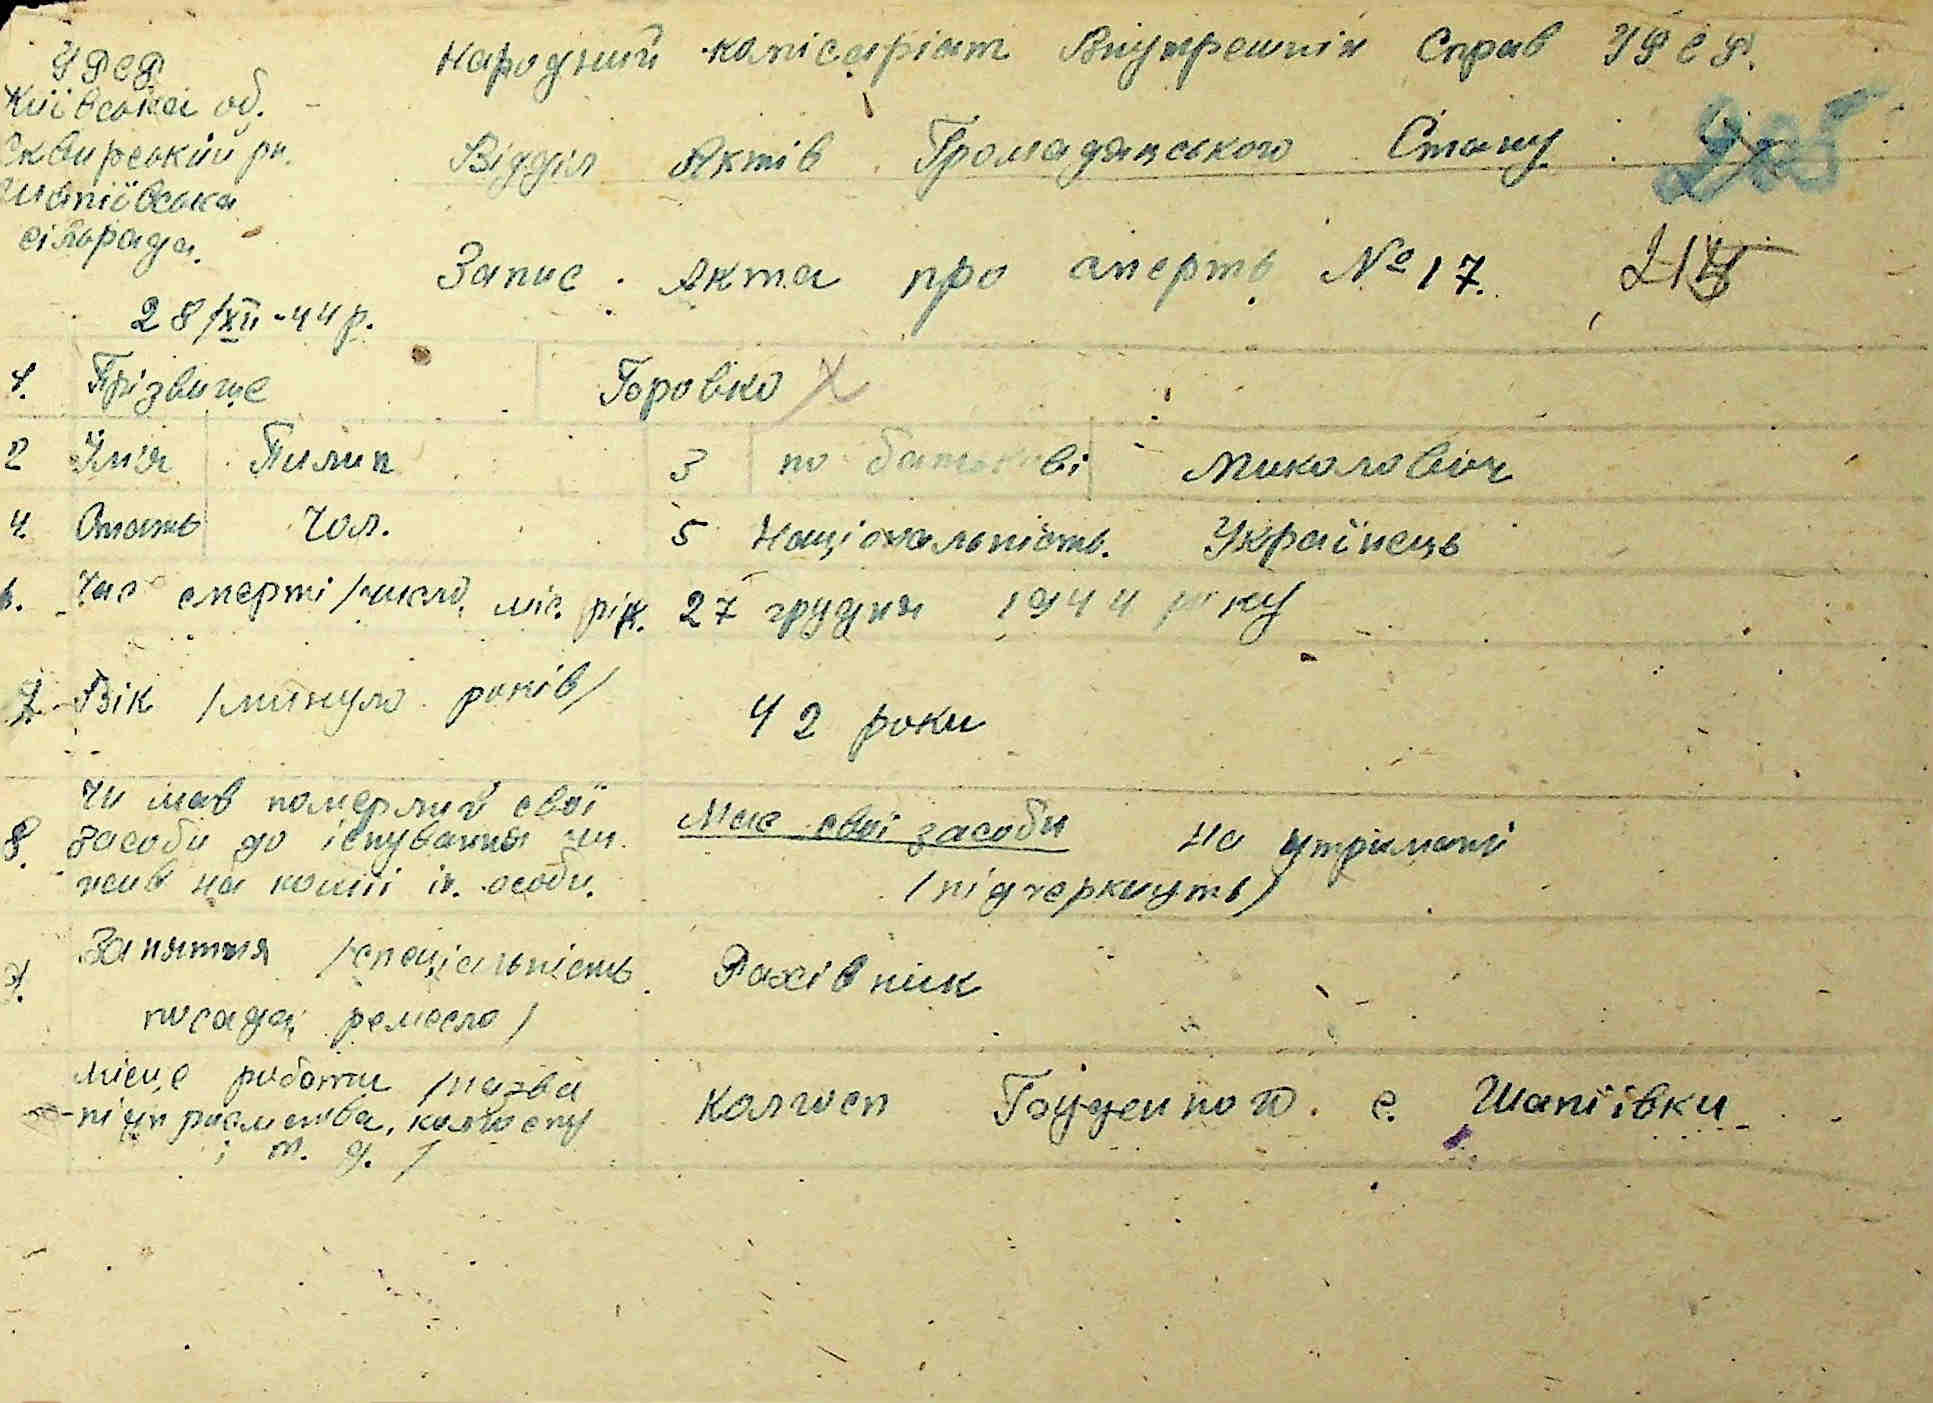 УРСР
Київської об.
Сквирський рн.
Шапіївська
сільрада.
28/XII-44 р.
Народний комісаріат Внутрешніх Справ УРСР.
Відділ Актів Громадянського Стану
Запис Акта про смерть №17.
1. Прізвище
2 Ім'я Пилип 3 по батькові Миколович
4. Стать Чол. 5 Національність. Українець
6. Час смерті /число, міс. рік. 27 грудня 1944 року
7. Вік /минуло років/ 42 роки
8. Чи мав померлий свої
засоби до існування чи
жив на кошті ін. особи.
Має свої засоби на утриманні
/підчеркнуть/
9. Заняття /спеціальність
посада, ремесло/
Рахівник
Місце роботи /назва
підприємства, колгоспу
і т. д. /
Колгосп с. Шапіївки